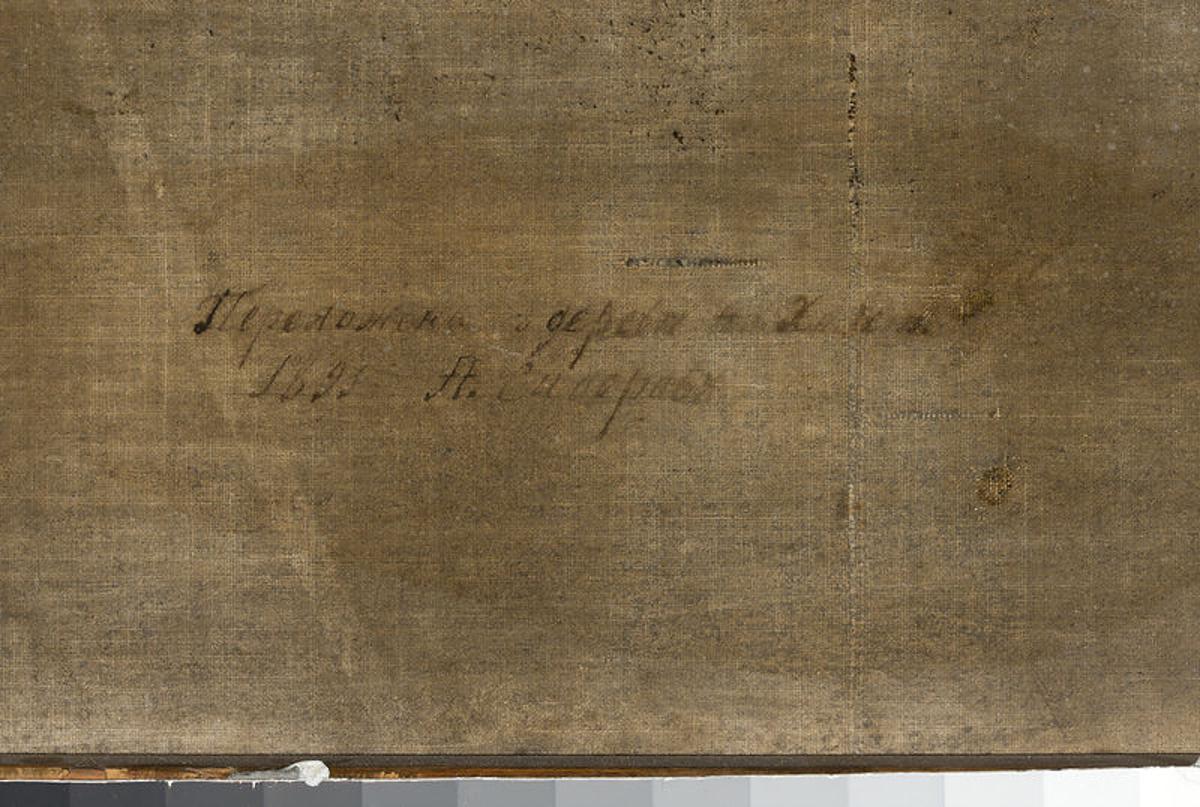 Переложена съ дерева на Холстъ
1891 А. Сидоровъ